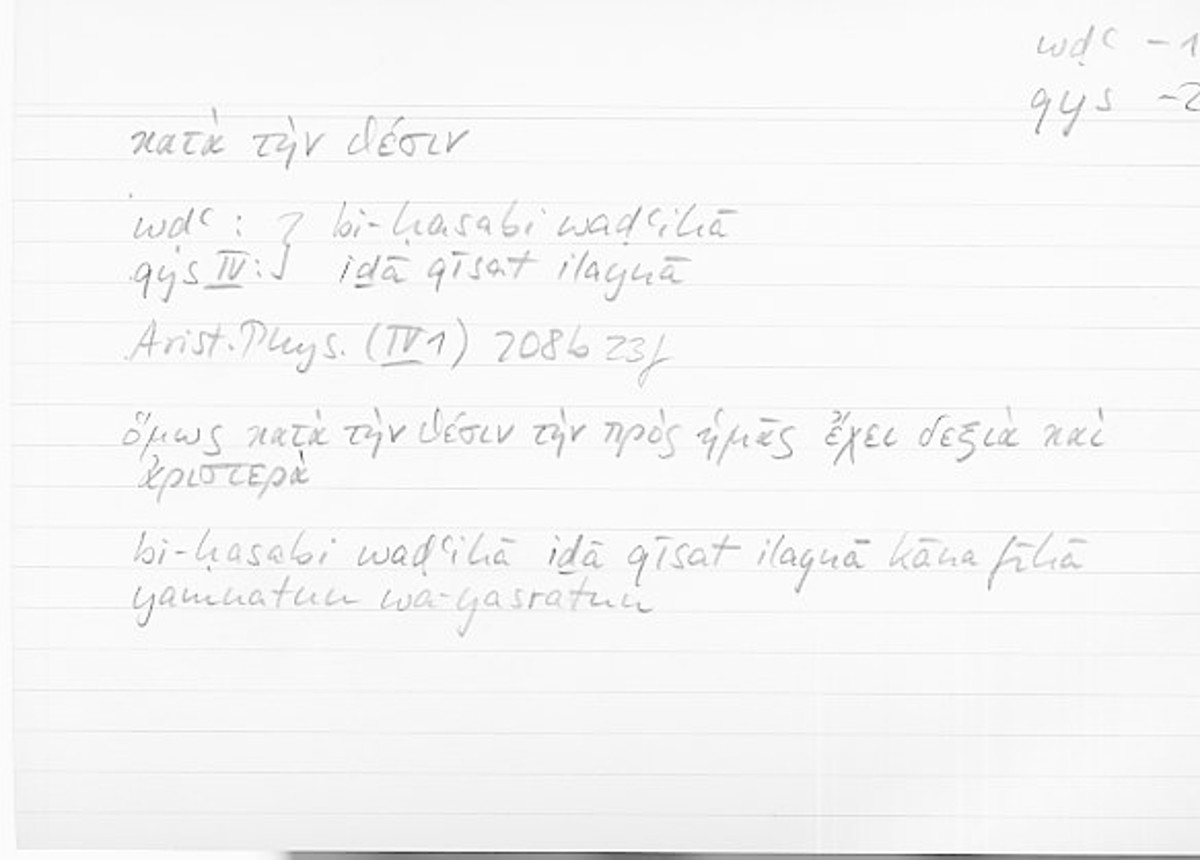 wḍʿ -1
qys -2
κατὰ τὴν θέσιν
wḍʿ : } bi-ḥasabi waḍʿihā
qys IV: } iḏā qīsat ilaynā
Arist. Phys. (IV 1) 208b 23f
ὅμως κατὰ τὴν θέσιν τὴν πρὸς ἡμᾶς ἔχει δεξιὰ καὶ
ἀριστερὰ
bi-ḥasabi waḍʿihā iḏā qīsat ilaynā kāna fīhā
yamnatun wa-yasratun